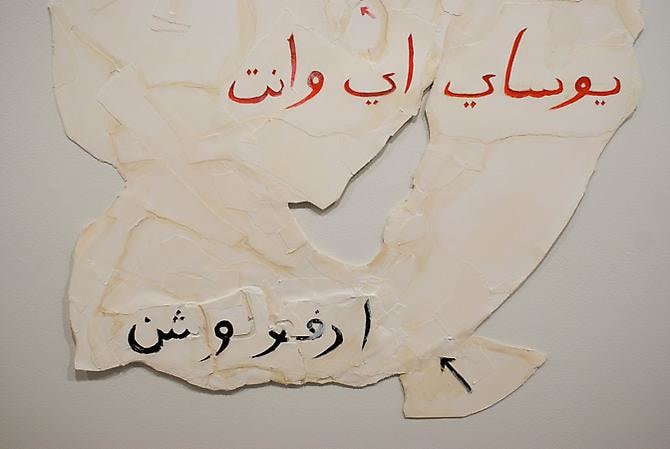 يوساي اي وانت
ا رفو لو شن